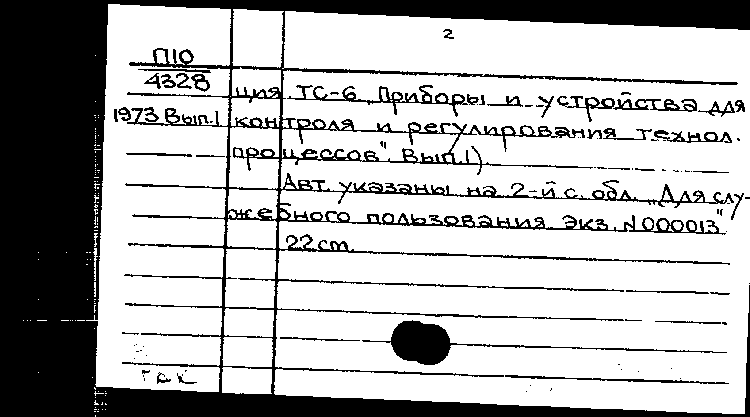 2
П10
4328
ция ТС-6 „Приборы и устройства для
1973 Вып.1 контроля и регулирования технол.
процессов". Вып.1).
Авт. указаны на 2-й с. обл. „Для слу-
жебного пользования Экз. №000013"
22 см.